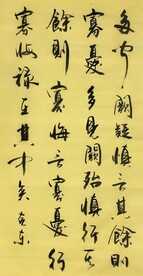 多聞闕疑慎言其餘則
寡憂多見闕殆慎行其
餘則寡悔言寡憂行
寡悔祿在其中矣